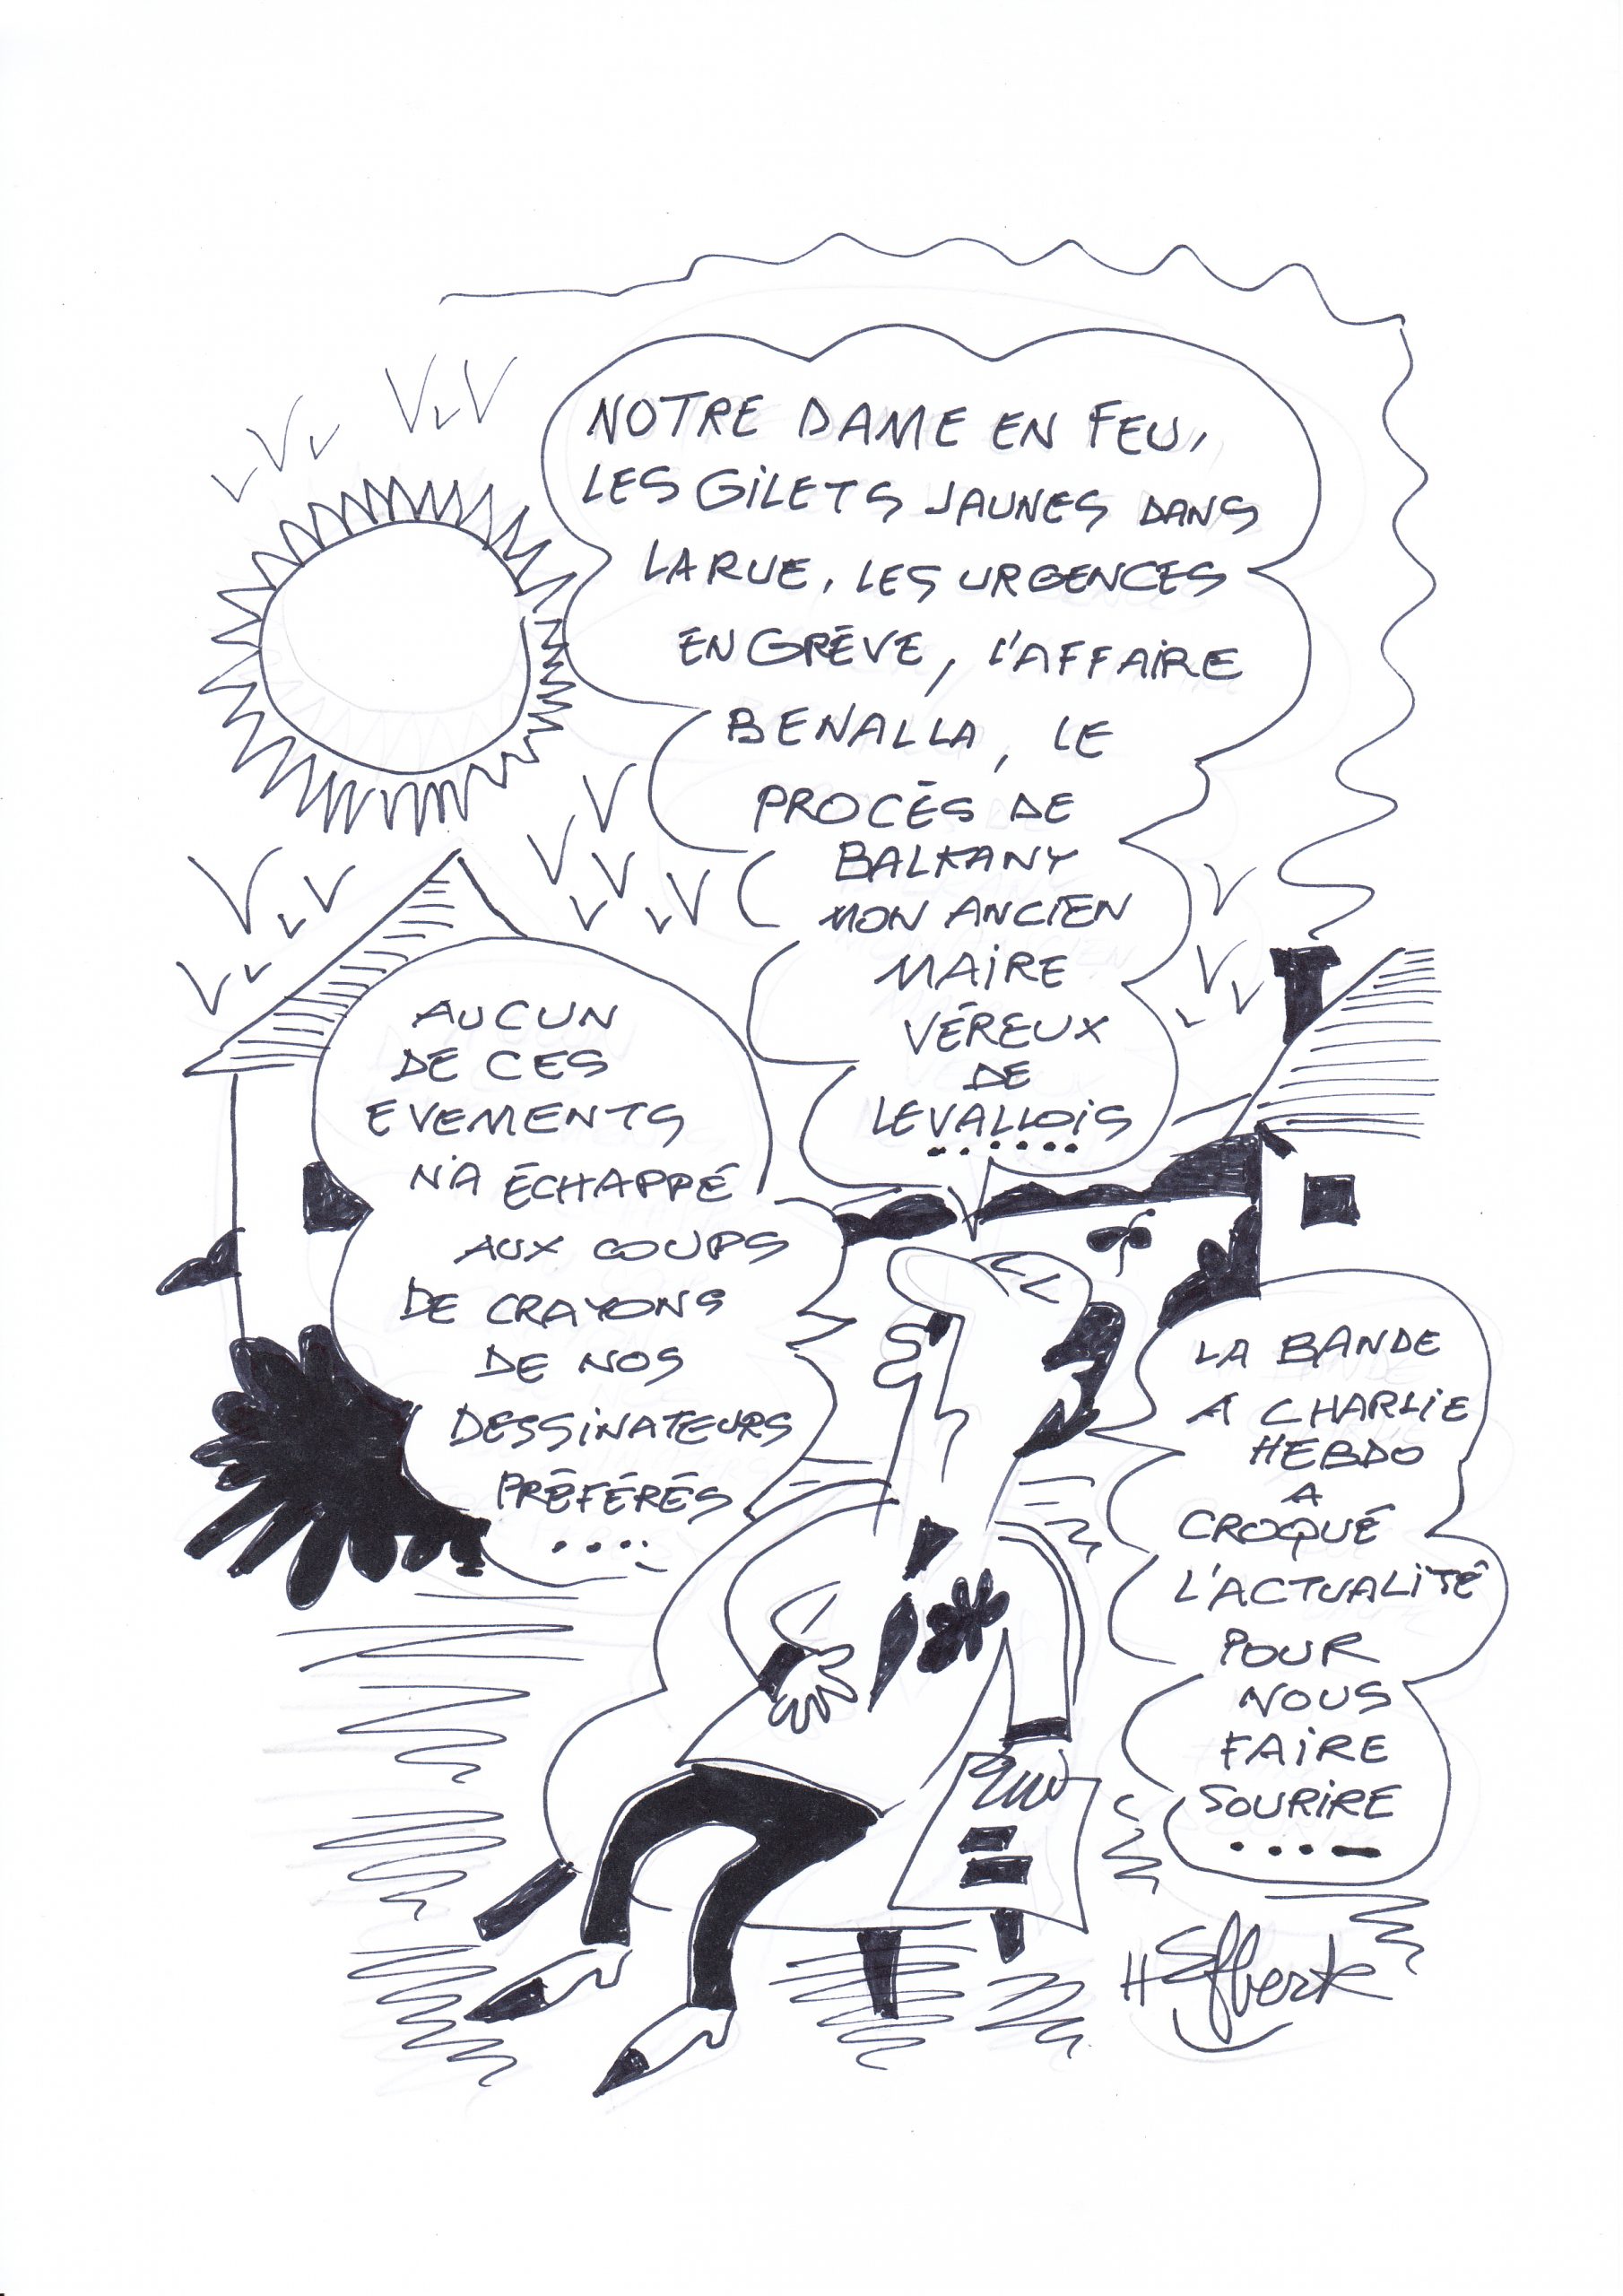 NOTRE DAME EN FEU,
LES GILETS JAUNES DANS
LA RUE, LES URGENCES
EN GRÈVE, L'AFFAIRE
BENALLA, LE
PROCÉS DE
BALKANY
MON ANCIEN
MAIRE
VÉREUX
DE
LEVALLOIS
......
AUCUN
DE CES
EVEMENTS
N'A ÉCHAPPÉ
AUX COUPS
DE CRAYONS
DE NOS
DESSINATEURS
PRÉFÉRÉS
....
LA BANDE
A CHARLIE
HEBDO
A
CROQUÉ
L'ACTUALITÉ
POUR
NOUS
FAIRE
SOURIRE
...—